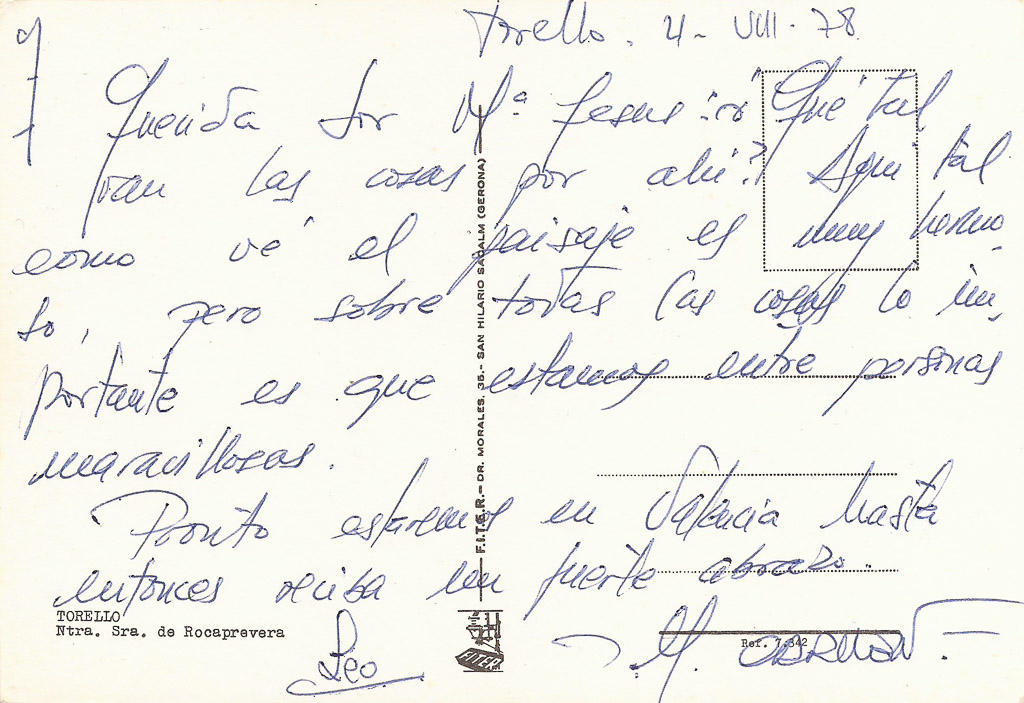 Torello. 4- VIII-78
Querida Sor Mª Jesus: ¿Qué tal
van las cosas por ahi? Aqui tal
como vé el paisaje es muy hermo-
so, pero sobre todas las cosas lo im-
portante es que estamos entre personas
maravillosas.
Pronto estaremos en Valencia hasta
entonces reciba un fuerte abrazo.
Leo
M.
F.I.T.E.R. - DR. MORALES, 35. - SAN HILARIO SACALM (GERONA)
TORELLO
Ntra. Sra. de Rocaprevera
FITER
Ref. 7.342